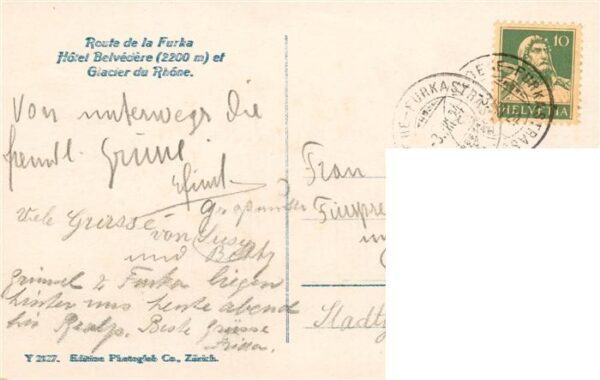 Route de la Furka
Hôtel Belvédère (2200 m) et
Glacier du Rhône.
Von unterwegs die
freundl. Grüsse
Grossmutter
Viele Grüsse
von Susy
und
Grimsel & Furka liegen
hinter uns heute abend
bis Realp. Beste Grüsse
Y 2127. Edition Photoglob Co., Zürich.
10
HELVETIA
FURKASTRAS
Frau